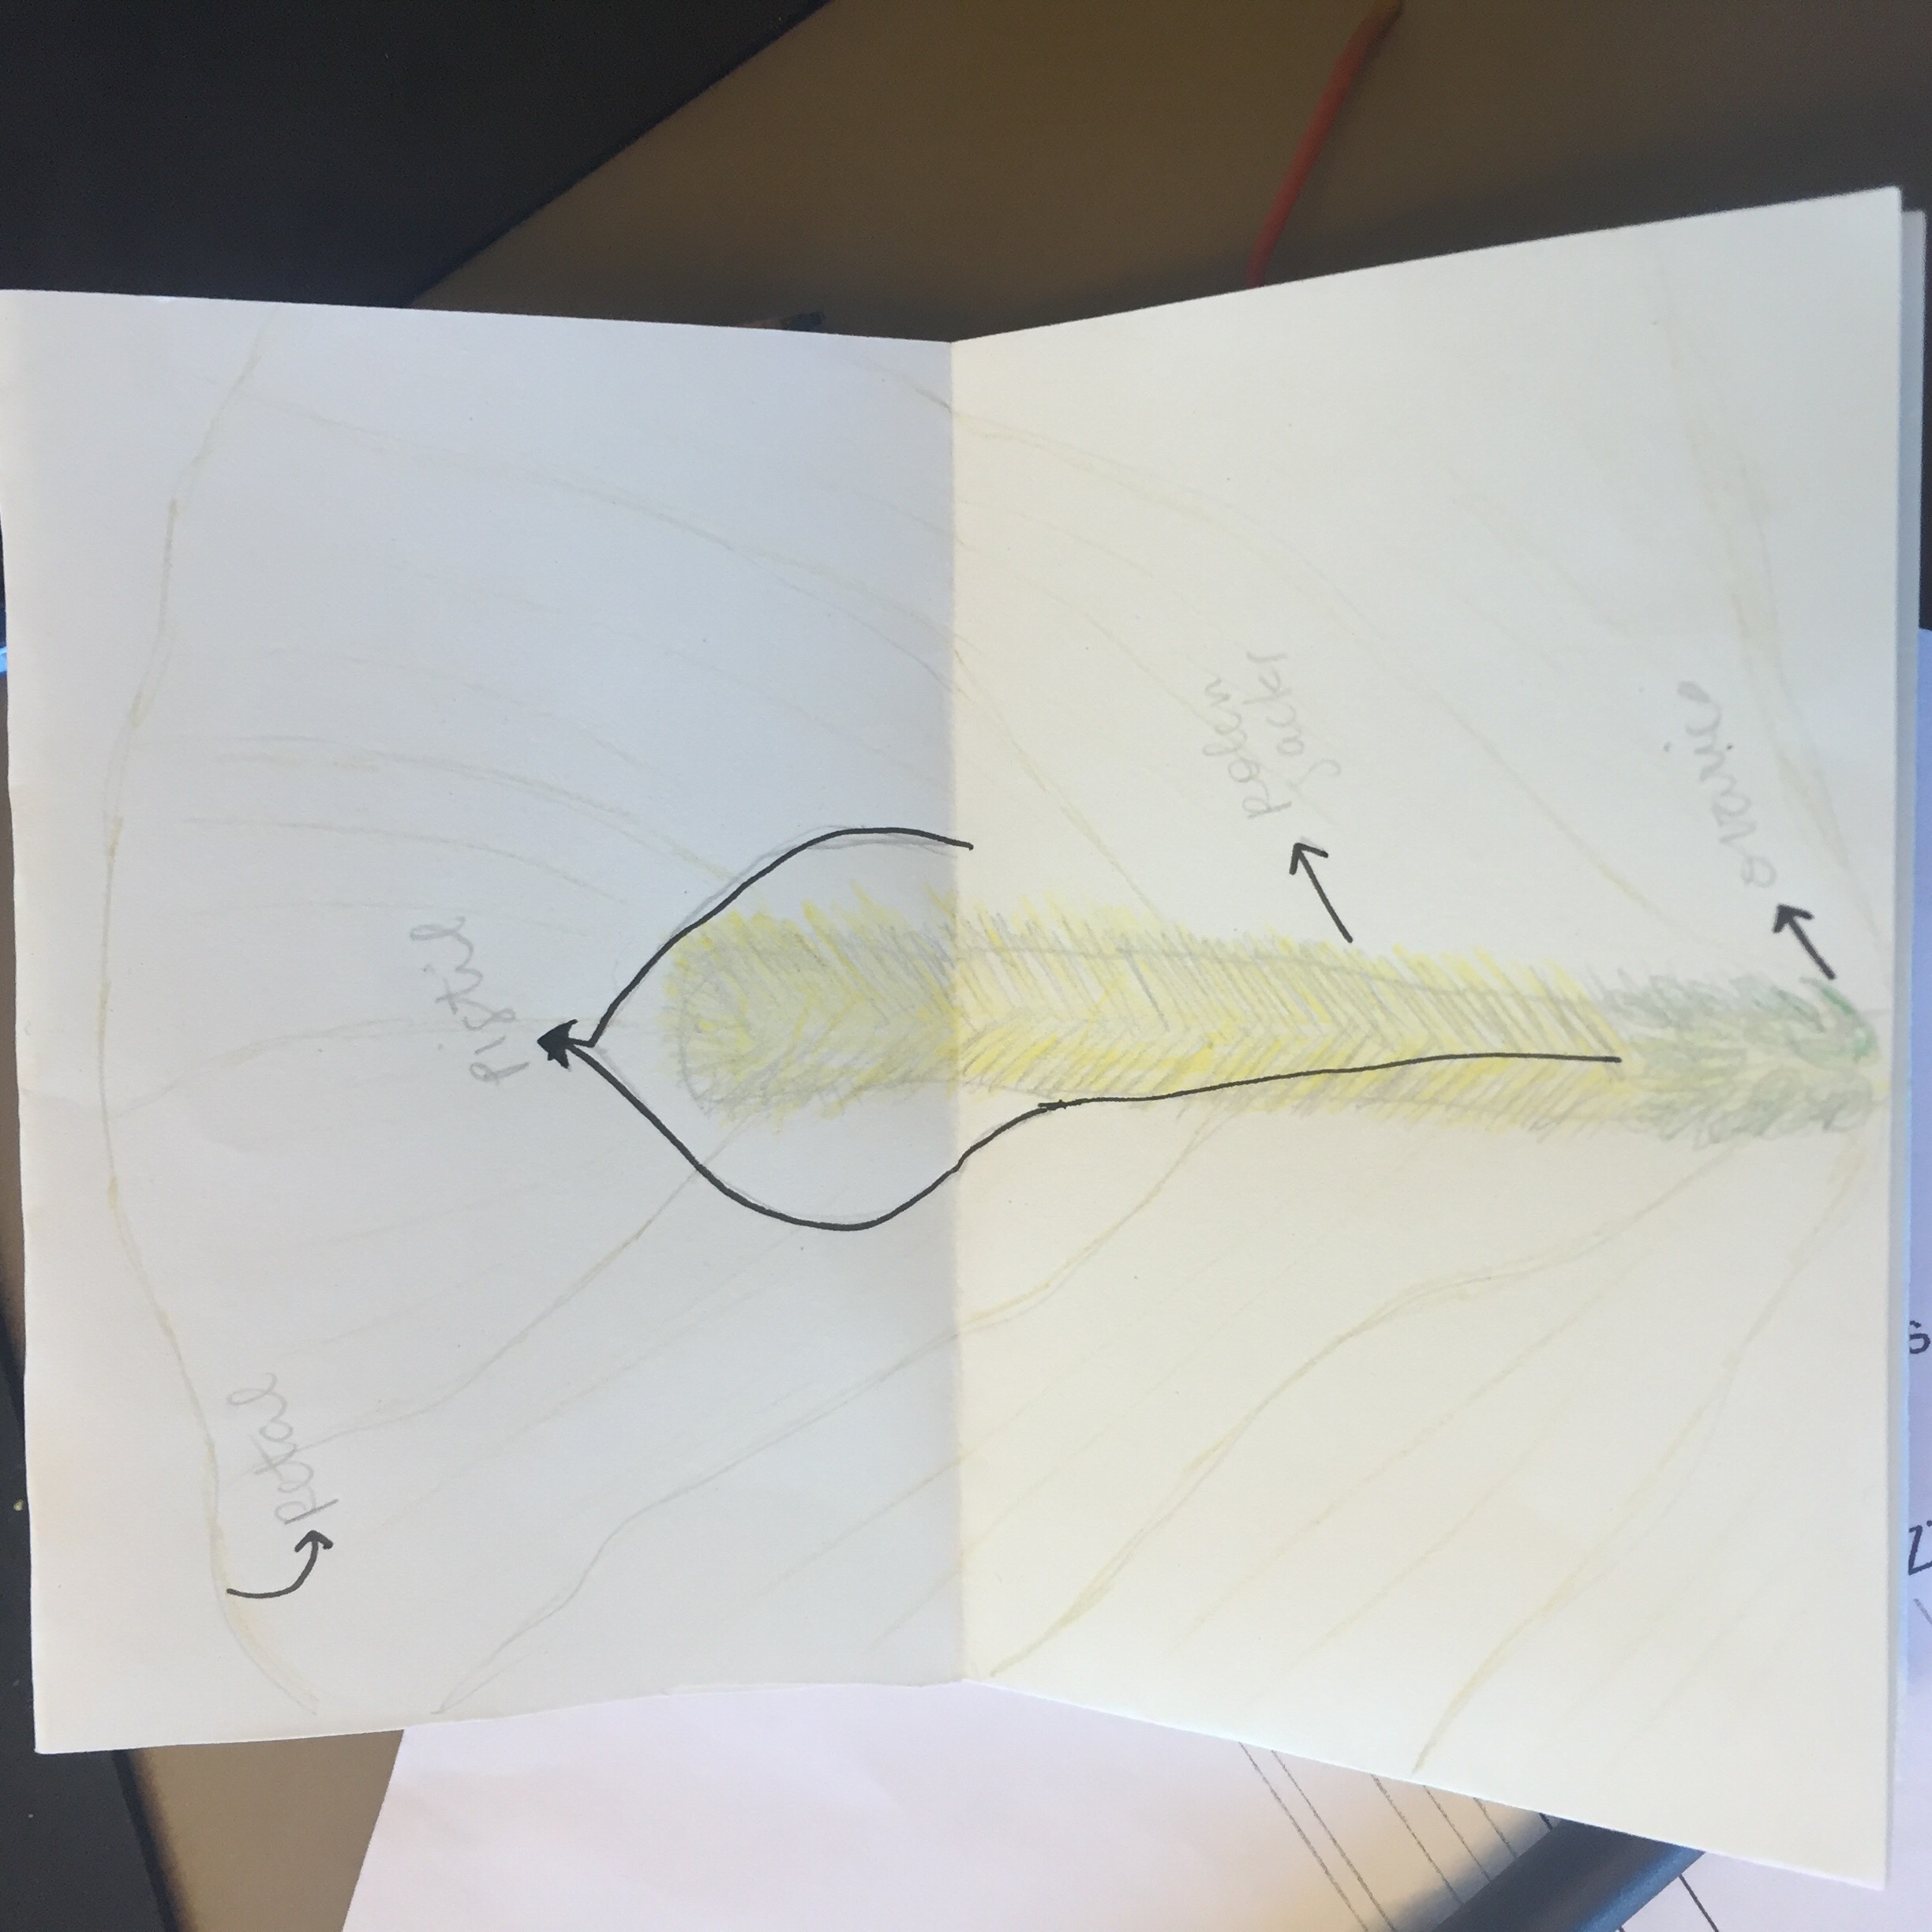 petal
pistil
polen
sacks
ovaries